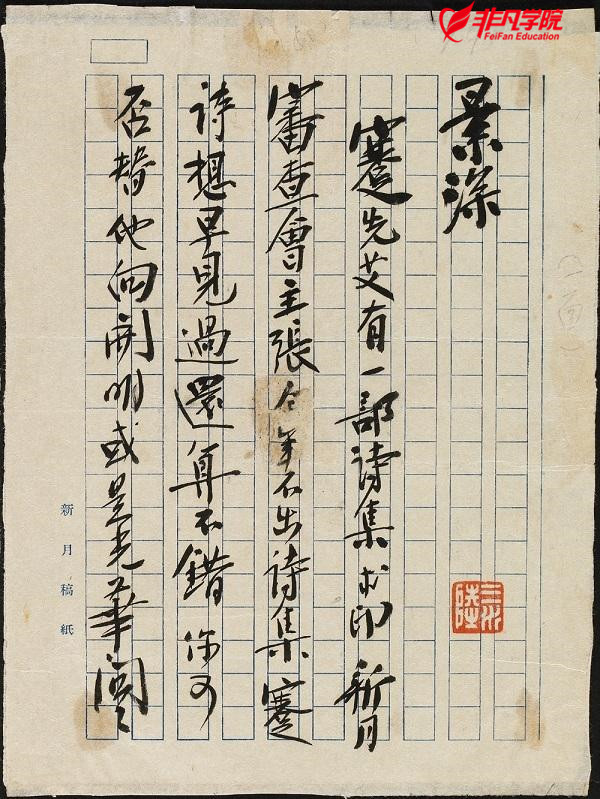 非凡学院
FeiFan Education
景深
蹇先艾有一部詩集求印新月
審查會主張今年不出詩集蹇
詩想早見過還算不錯你可
否替他向開明或是光華
新月稿紙